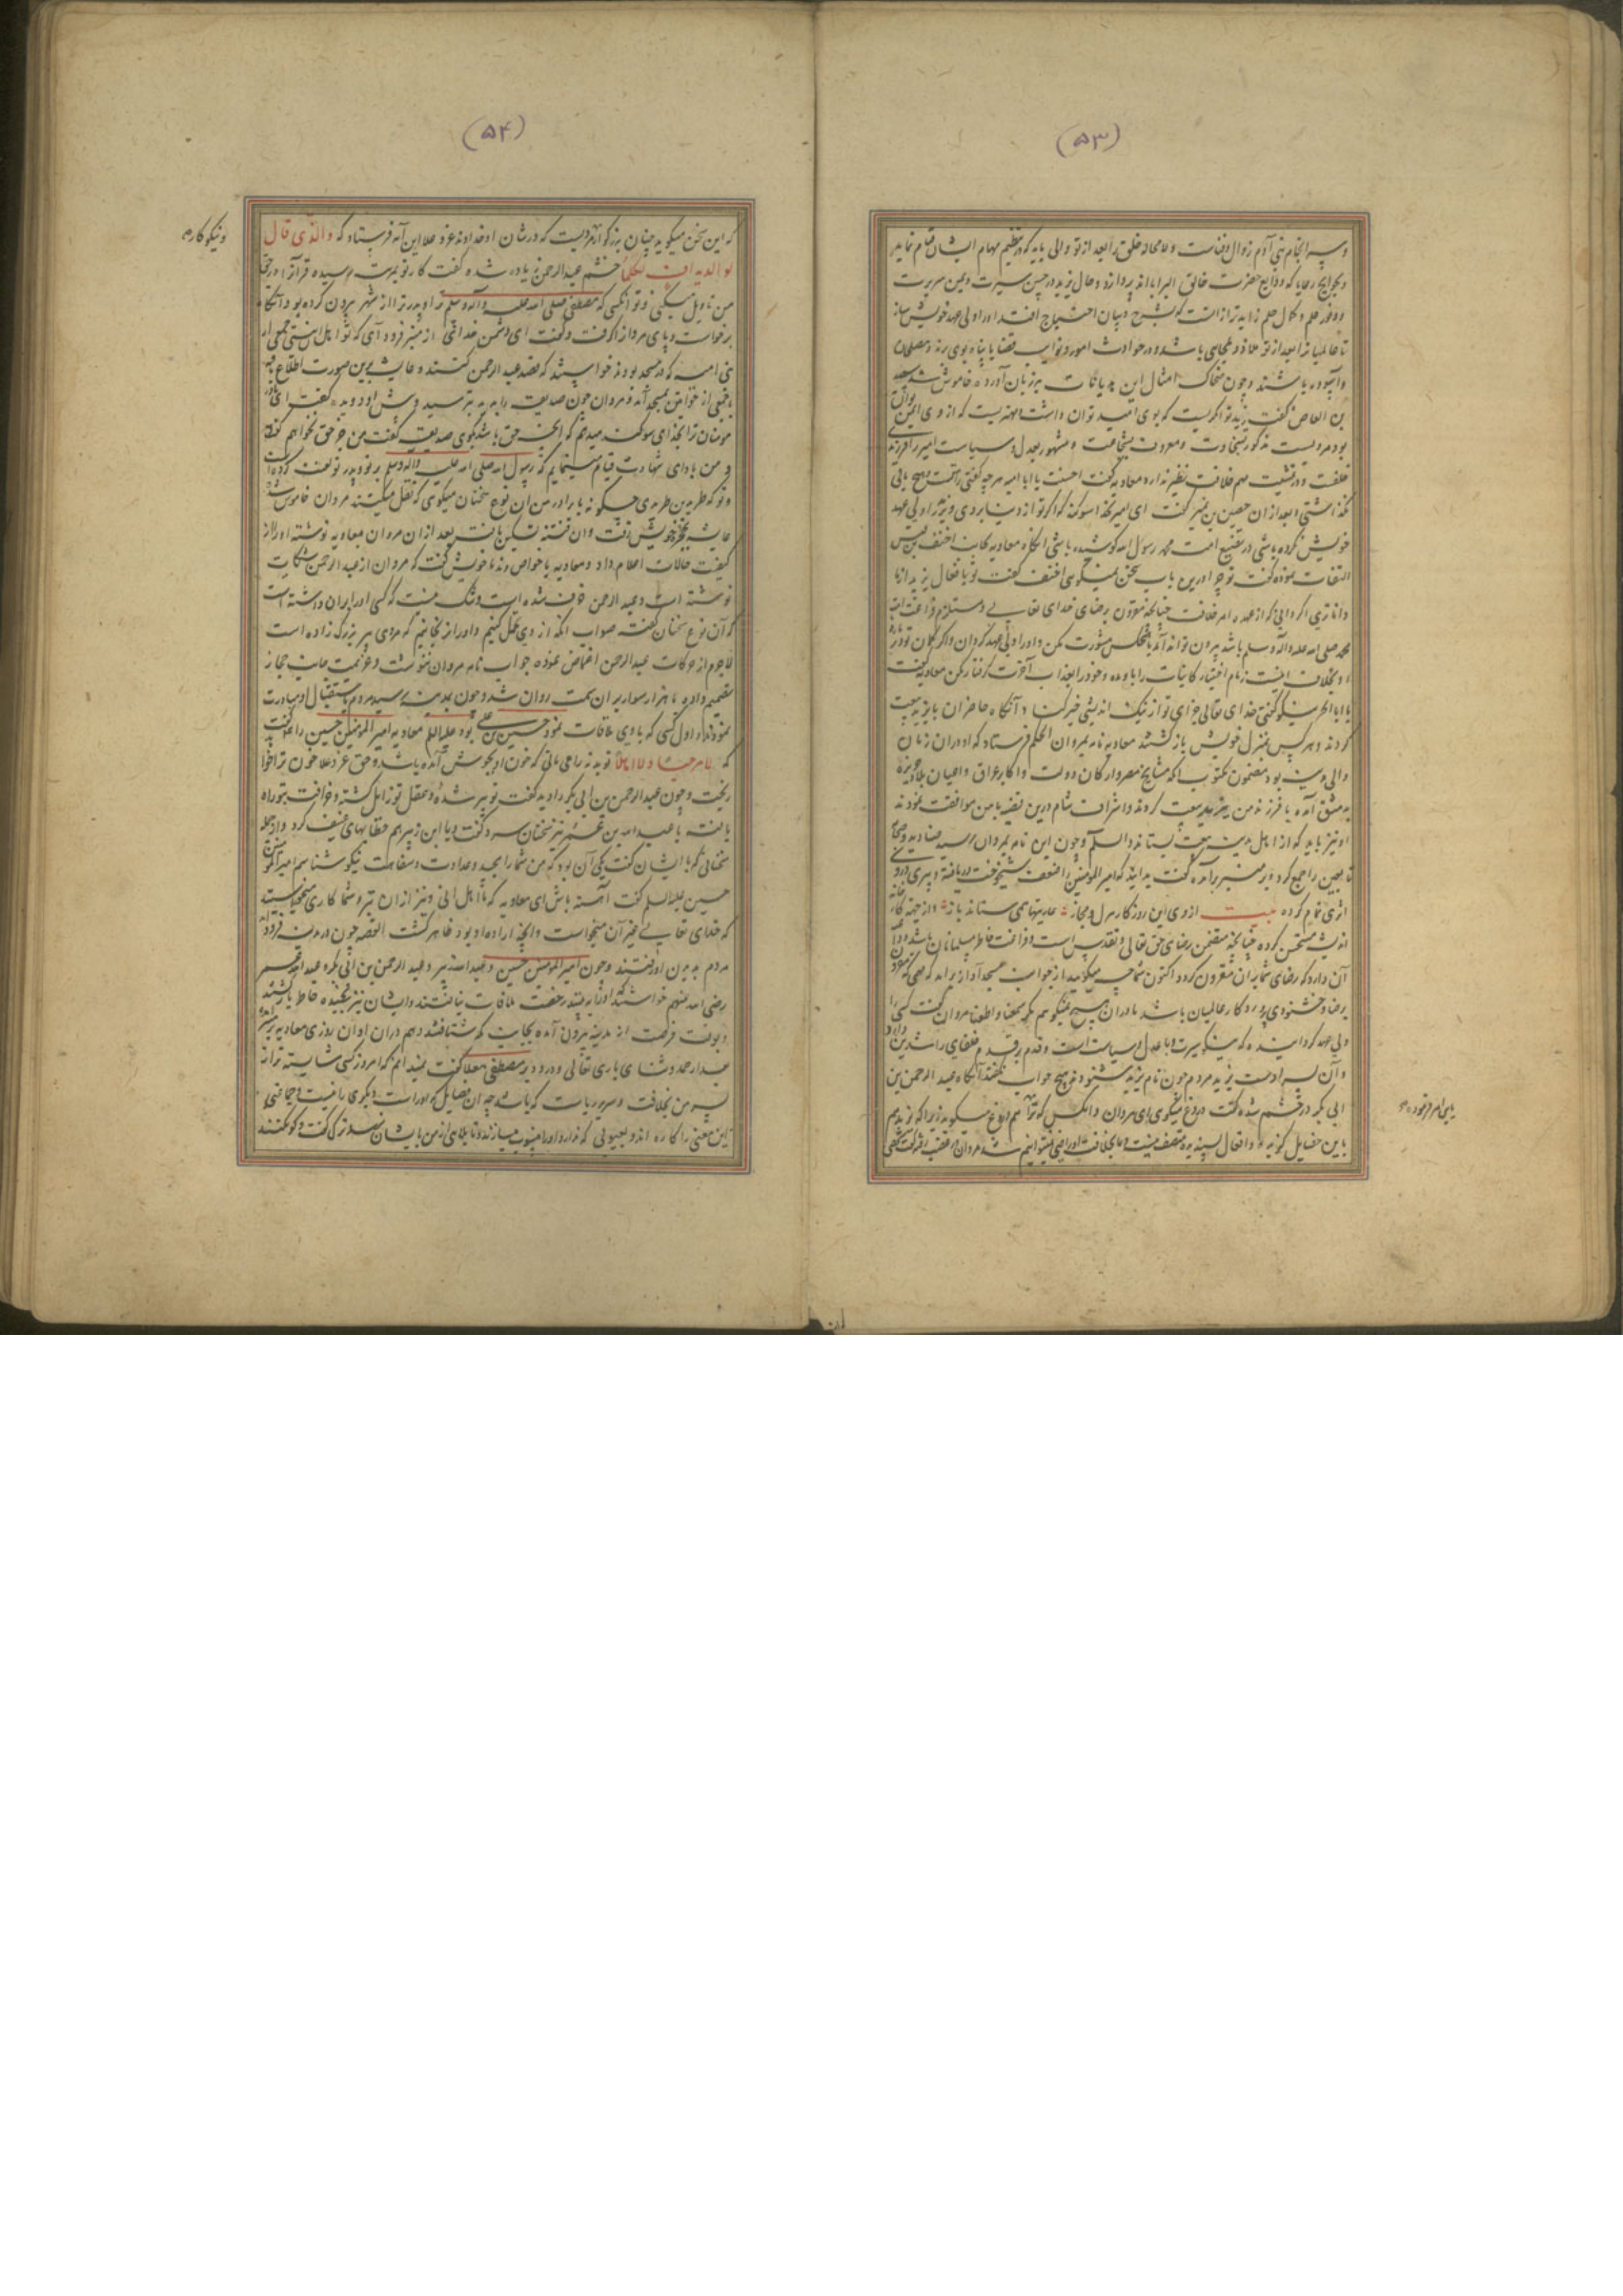 (۵۳)
و سرانجام بنی آدم زوال و فناست و لامحاله خلق را بعد از تو والی باید که در تنظیم مهام ایشان قیام نماید
و بحوایج رعایا که ودایع حضرت خالق البرایااند پردازد و حال یزید در حسن سیرت و یمن سریرت
و وفور علم و کمال حلم زاید بر آن است که بشرح و بیان احتیاج افتد او را ولی عهد خویش ساز
تا عالمیان را بعد از تو ملاذ و ملجایی باشد و در حوادث امور و نوایب قضایا پناه بوی برند و
و آسوده باشند و چون ضحاک امثال این هذیانات بر زبان آورده خاموش شد سعید
بن العاص گفت یزید تو اگریست که بوی امید توان داشت
بود مردیست مذکور بسخاوت و معروف بشجاعت و مشهور بعدل و سیاست امیر
خلقت و در تمشیت مهم خلافت نظیر ندارد معاویه گفت احسنت یا ابا امیه هرچه گفتی راست گفتی هیچ باقی
نگذاشتی و بعد از آن حصین بن نمیر گفت ای امیر بخدا سوگند که اگر تو از دنیا بروی و یزید را ولی عهد
خویش نکرده باشی در تضییع امت محمد رسول الله کوشیده باشی آنگاه معاویه بجانب احنف بن قیس
التفات نموده گفت تو چرا در این باب سخن نمیگویی احنف گفت تو بافعال یزید از ما
داناتری اگر دانی که از عهده امر خلافت چنانچه مقرون برضای خدای تعالی و مستلزم فراغت امت
محمد صلی الله علیه و آله و سلم باشد بیرون تواند آمد با هیچکس مشورت مکن و او را ولی عهد گردان و اگر گمان تو در باره
او بخلاف اینست زمام اختیار کاینات را باو مده و خود را بعذاب آخرت گرفتار مکن معاویه گفت
یا ابا بحر نیکو گفتی خدای تعالی جزای تو از نیک اندیشی خیر کناد و آنگاه حاضران با یزید بیعت
کردند و هر کس بمنزل خویش باز گشتند معاویه نامه بمروان الحکم فرستاد که او در آن زمان
والی مدینه بود مضمون مکتوب آنکه مشایخ مصر و ارکان دولت و اکابر عراق و اعیان بلاد جزیره
بدمشق آمده با فرزند من یزید بیعت کردند و اشراف شام درین قضیه با من موافقت نمودند
او نیز باید که از اهل مدینه بیعت بستاند والسلام و چون این نامه بمروان رسید صنادید صحابه
تابعین را جمع کرد و بر منبر برآمده گفت بدانید که امیر المومنین را ضعف شیخوخت دریافته و پیری درو
اثری تمام کرده بیت از وی این روزگار هزل و مجاز عاریتهای می ستاند باز و از جهة خانه
اندیشه مستحسن کرده چنانچه متضمن رضای حق تعالی و تقدس است و فراغت خاطر مسلمانان باشد
آن دارد که رضای شما بدان مقرون گردد اکنون شما چه میگویید از جوانب مسجد آواز برآمد که
برضا و خشنودی پروردگار عالمیان باشد ما در آن هیچ نمیگوییم مگر سمعنا و اطعنا مروان گفت کسی را
ولی عهد گردانیده که نیکو سیرت و با عدل و سیاست است و قدم بر قدم خلفای راشدین دارد
و آن پسر اوست یزید مردم چون نام یزید شنودند هیچ جواب نگفتند آنگاه عبد الرحمن بن
ابی بکر در خشم شده گفت دروغ میگویی ای مروان و آنکس که تو را هم دروغ میگوید زیرا که یزید هم
باین خصایل گزیده و افعال پسندیده متصف نیست و ما بخلافت او راضی نمیتوانیم شد مروان در غضب
(۵۴)
که این سخن میگوید چنان بزرگوار مردیست که در شان او خداوند عز و علا این آیه فرستاد که والذی قال
لوالدیه اف لکما خشم عبد الرحمن زیادت شده گفت کار تو بمرتبه رسیده قرآن را در حق
من تاویل میکنی و تو آنکسی که مصطفی صلی الله علیه و آله و سلم ترا و پدر ترا از شهر بیرون کرده بود آنگاه
برخواست و پای مروان را گرفت و گفت ای دشمن خدا از منبر فرود آی که تو اهل این نیستی جمعی از
بنی امیه که در مسجد بودند خواستند که قصد عبد الرحمن کنند و عایشه برین صورت اطلاع
با جمعی از خواتین بمسجد آمد و مروان چون صدیقه را بدید بترسید و پیش او دوید و گفت ای مادر
مومنان ترا بخدای سوگند میدهم که آنچه حق باشد بگوی صدیقه گفت من جز حق نخواهم گفت
و من بادای شهادت قیام مینمایم که رسول الله صلی الله علیه و آله و سلم بر تو و پدر تو لعنت کرده است
و تو که طرید بن طریدی چگونه با برادر من این نوع سخنان میگوی که نقل میکنند مروان خاموش شد
عایشه بحجره خویش رفت و آن فتنه تسکین یافت بعد از آن مروان معاویه نوشته او را از
کیفیت حالات اعلام داد و معاویه با خواص و ندما خویش گفت که مروان از عبد الرحمن شکایت
نوشته است و عبد الرحمن خرف شده است و شک نیست که کسی او را بران داشته است
که آن نوع سخنان گفته صواب آنکه از وی تحمل کنیم و او را نرنجانیم که مردی پیر بزرگ زاده است
لاجرم از حرکات عبد الرحمن اغماض نموده جواب نامه مروان ننوشت و عزیمت جانب حجاز
تصمیم داده با هزار سوار بدان سمت روان شد و چون بمدینه رسید مردم باستقبال او مبادرت
نمودند و اول کسی که با وی ملاقات نمود حسین بن علی بود علیه السلام معاویه امیر المومنین حسین را گفت
که لا مرحبا و لا اهلا تو بدنه را می مانی که خون او بجوش آمده باشد و حق عز و علا خون ترا خواهد
ریخت و چون عبد الرحمن بن ابی بکر را دید گفت تو پیر شده و عقل تو زایل گشته و خرافت بتو راه
یافته با عبد الله بن عمر نیز سخنان سرد گفت و با ابن زبیر هم خطابهای عنیف کرد و از جمله
سخنانی که با ایشان گفت یکی آن بود که من شما را بحقد و عداوت و سفاهت نیکو شناسم امیر المومنین
حسین علیه السلام گفت آهسته باش ای معاویه که ما اهل انی و نیز از آن بتر و شما کاری میخواستید
که خدای تعالی غیر آن میخواست و آنچه اراده او بود ظاهر گشت القصه چون در مدینه فرود آمد
مردم بدیدن او رفتند و چون امیر المومنین حسین و عبد الله زبیر و عبد الرحمن بن ابی بکر و عبد الله عمر
رضی الله عنهم خواستند او را به بینند رخصت ملاقات نیافتند و ایشان نیز رنجیده خاطر باز گشتند
و بوقت فرصت از مدینه بیرون آمده بجانب مکه شتافتند و هم در آن اوان روزی معاویه بر منبر
بعد از حمد و ثنای باری تعالی و درود بر مصطفی معلا گفت نمیدانم که امروز کسی شایسته تر از
پسر من بخلافت و سروریاست که باشد چه آن فضایل که او راست دیگری را نیست و جماعتی
این معنی را کاره اند و بعیوبی که ندارد او را منسوب میسازند و تا بلای از من بایشان نرسد ترک گفت و گو نکنند
و نیکوکار